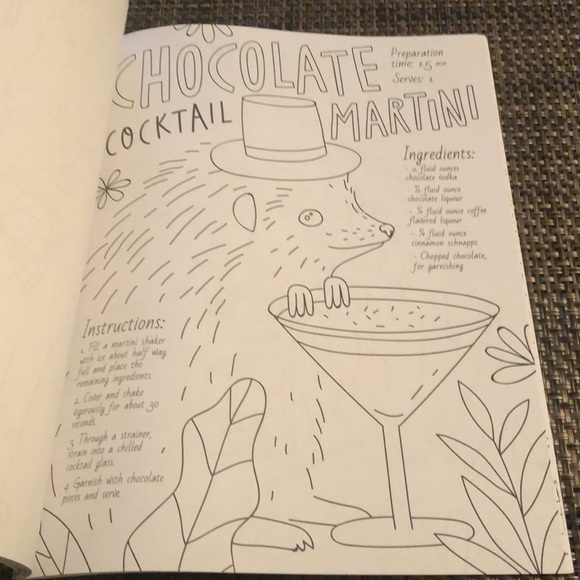 CHOCOLATE
COCKTAIL
MARTINI
Preparation
time: 1.5 min
Serves: 1
Ingredients:
fluid ounces
chocolate vodka
- ½ fluid ounce
chocolate liqueur
- ¼ fluid ounce coffee
flavored liqueur
- ¼ fluid ounce
cinnamon schnapps
- Chopped chocolate,
for garnishing
Instructions:
1. Fill a martini shaker
with ice about half way
full and place the
remaining ingredients.
2. Cover and shake
vigorously for about 30
seconds.
3. Through a strainer,
strain into a chilled
cocktail glass.
4. Garnish with chocolate
pieces and serve.